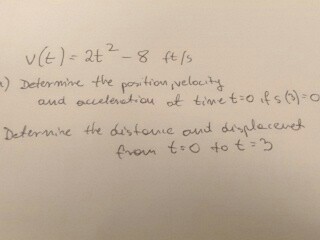 v(t) = 2t² - 8 ft/s
a) Determine the position, velocity
and acceleration at time t=0 if s(3)=0
Determine the distance and displacement
from t=0 to t=3